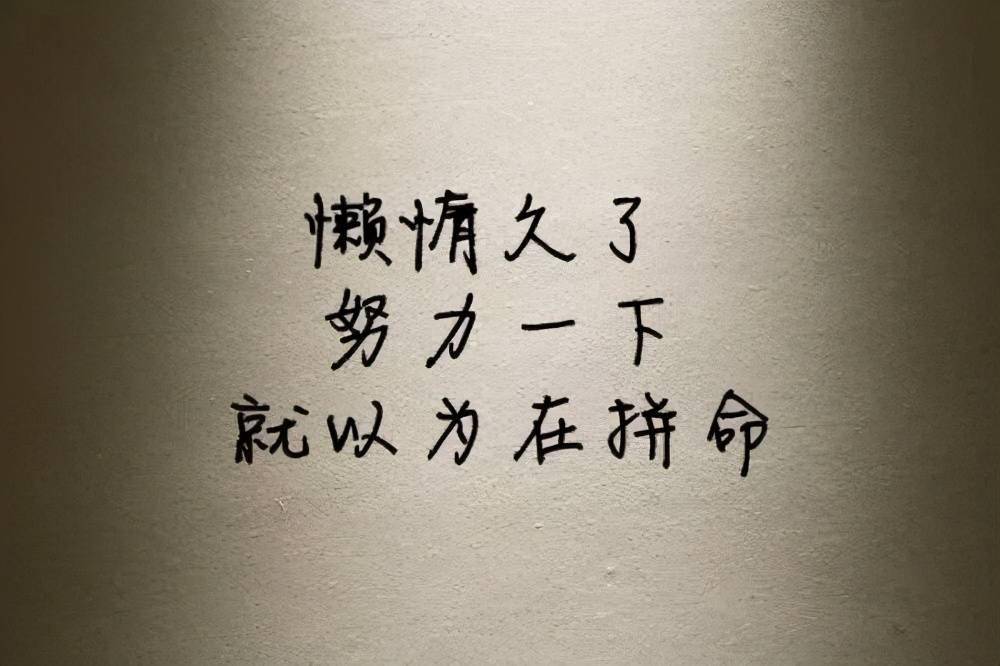 懒惰久了
努力一下
就以为在拼命